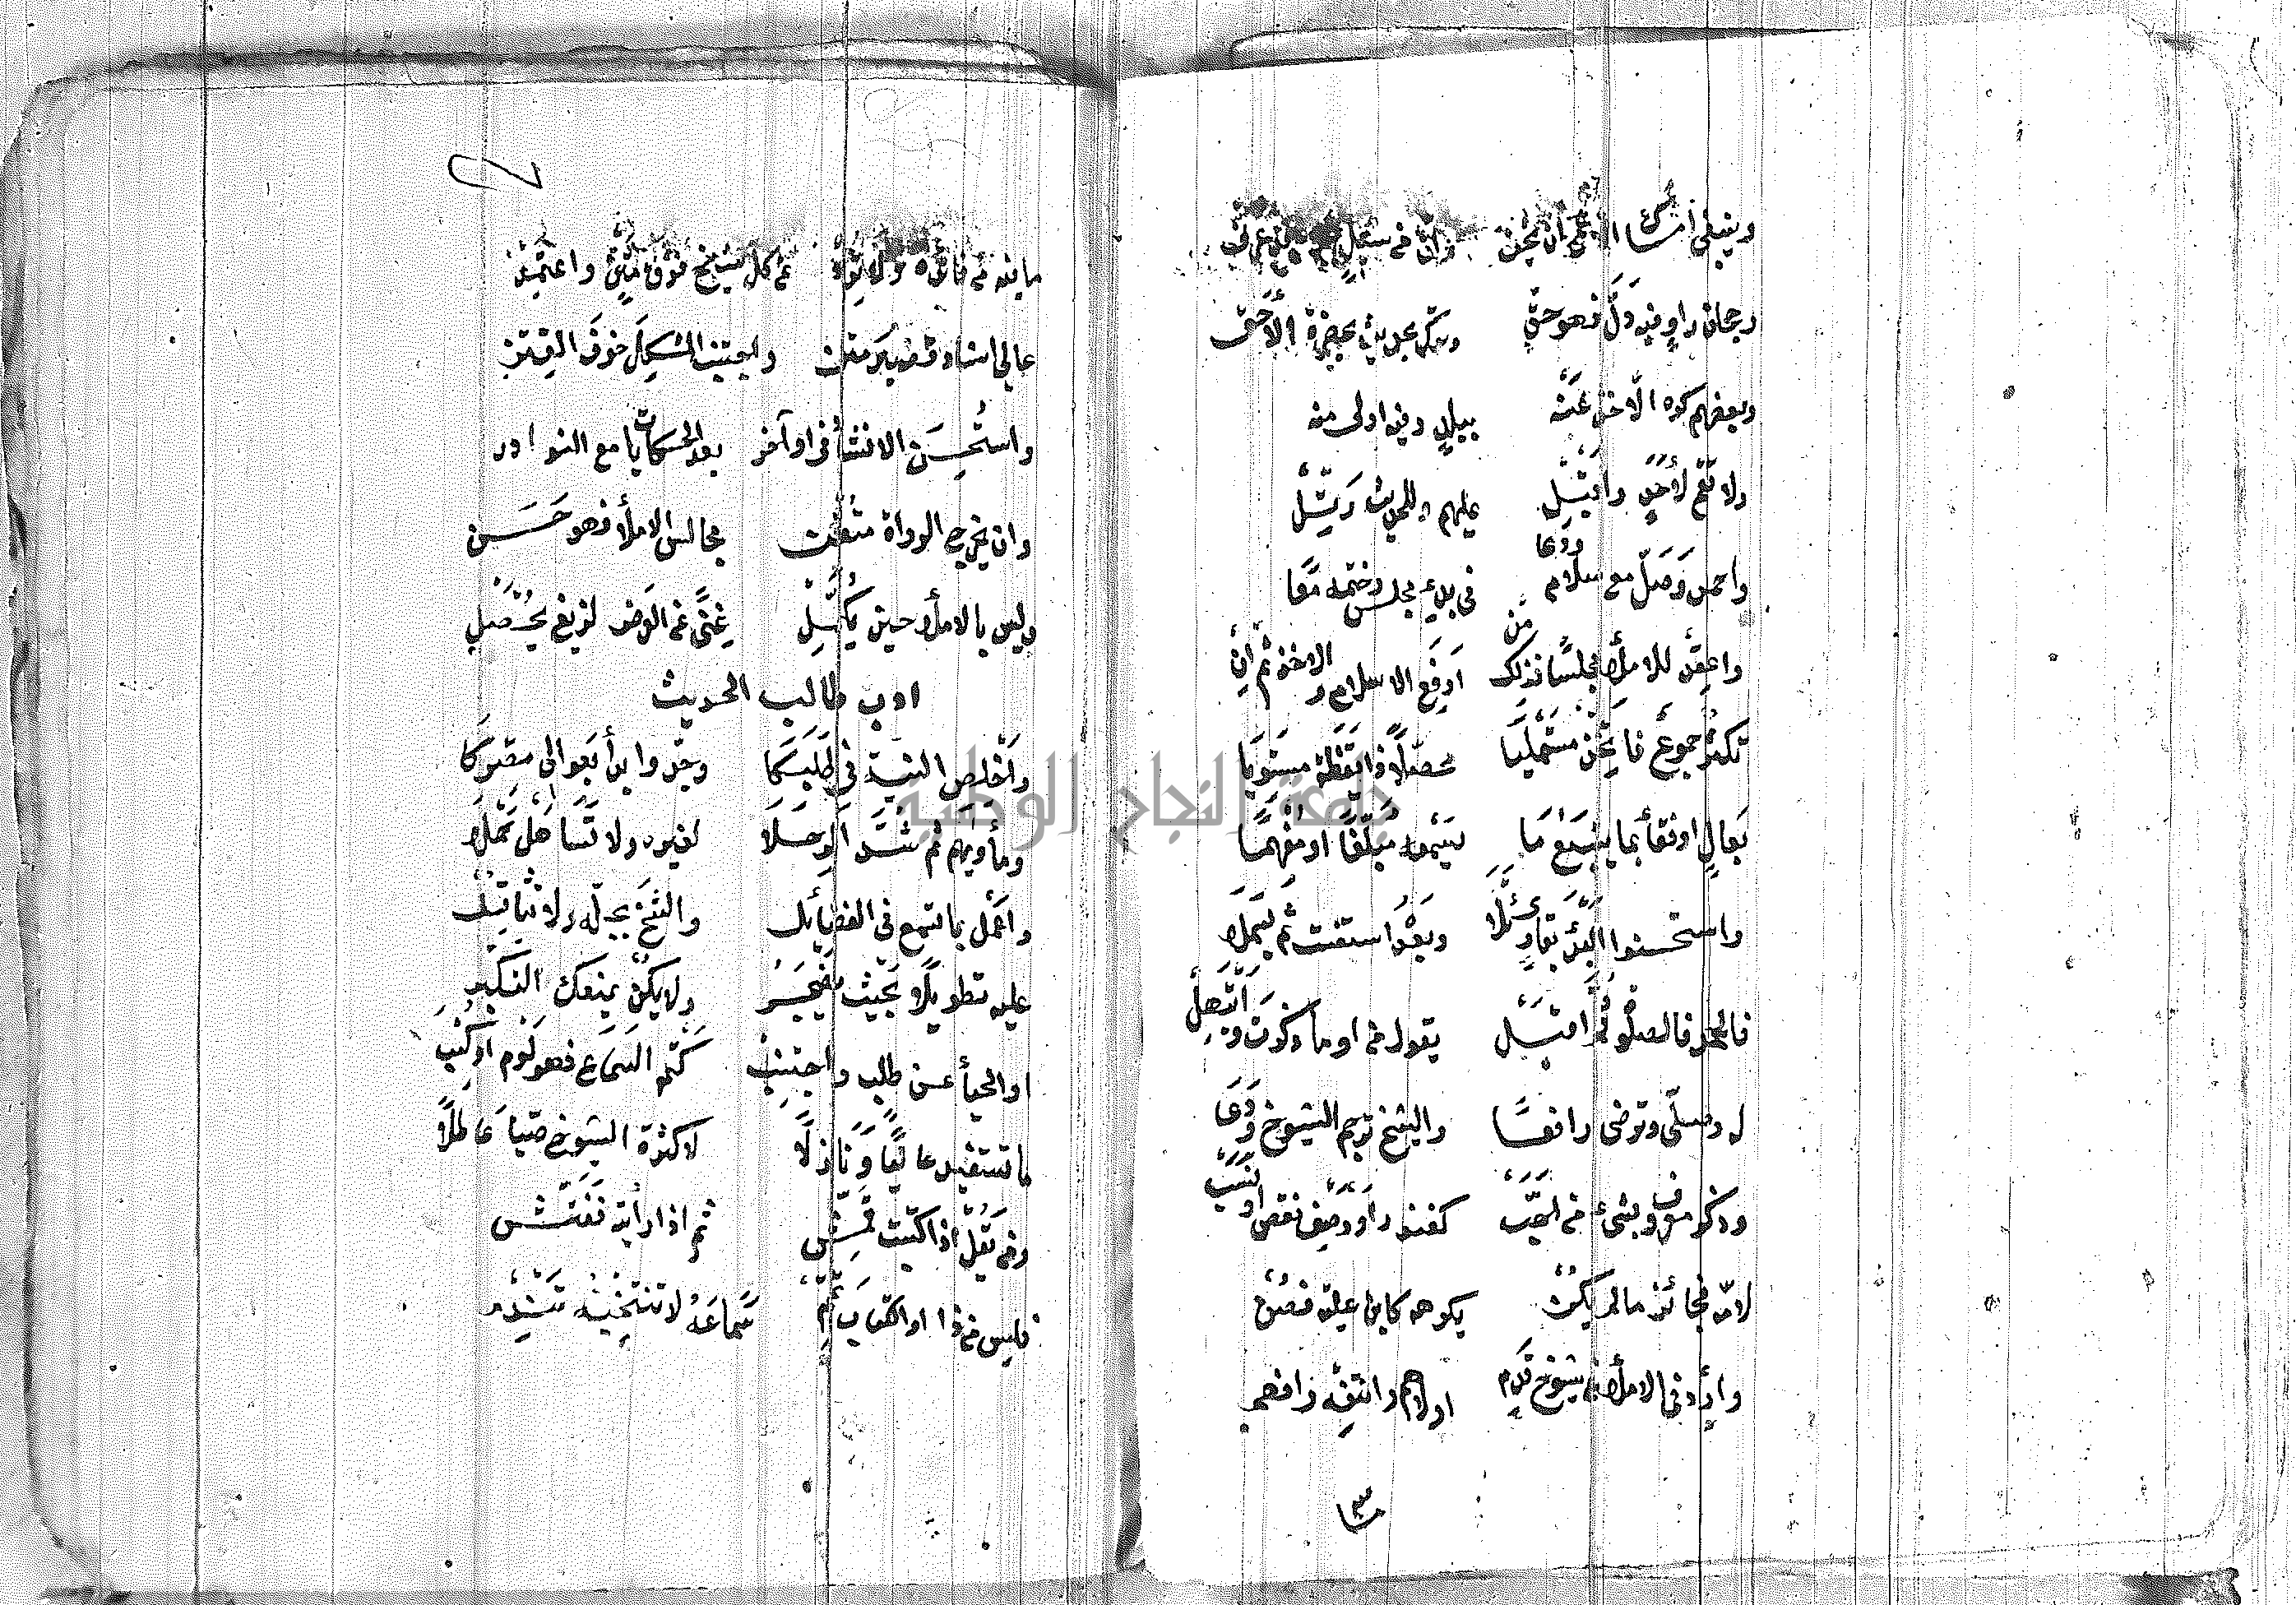 وينبغي امساك الاعمى ان يخف وان من سئل
رجحان راو فيه دل فهو حق وترك تحديث بحضرة الاحق
وبعضهم كره الاخذ عنه ببلد وفيه اولى منه
ولا تقم لاحد واقبل عليهم وللحديث رتل
واحمد وصل مع سلام ودعا في بدء مجلس وختمه معا
واعقد للاملا مجلسا فذاك من ارفع الاسماع والاخذ ثم ان
تكثر جموع فاتخذ مستمليا محصلا ذا يقظة مستويا
بعال او فقائما يتبع ما يسمعه مبلغا او مفهما
واستحسنوا البدء بقارئ تلا وبعده استنصت ثم بسملا
فالحمد فالصلوة ثم اقبل يقول من او ما ذكرت وابتهل
له وصلى وترضى رافعا والشيخ ترجم الشيوخ ودعا
وذكر معروف بشيء من لقب كغندر او وصف نقص او نسب
لامه فجائز ما لم يكن يكرهه كابن علية فصن
وارو في الاملا عن شيوخ قدم اولاهم وانتقه وافهم
٣
ما فيه من فائدة ولا تزد عن كل شيخ فوق متن واعتمد
عالي اسناد قصير متن واجتنب المشكل خوف الفتن
واستحسن الانشاد في اواخر بعد الحكايات مع النوادر
وان يخرج للرواة متقن مجالس الاملا فهو حسن
وليس بالاملا حين يكمل غنى عن العرض لزيغ يحصل
ادب طالب الحديث
واخلص النية في طلبكا وجد وابدأ بعوالي مصركا
وما يهم ثم شد الرحلا لغيره ولا تساهل حملا
واعمل بما تسمع في الفضائل والشيخ بجله ولا تثاقل
عليه تطويلا بحيث يضجر ولا تكن يمنعك التكبر
او الحيا عن طلب واجتنب كتم السماع فهو لوم واكتب
ما تستفيد عاليا ونازلا لا كثرة الشيوخ صيتا عاطلا
ومن يقل اذا كتبت قمش ثم اذا رويته ففتش
فليس من ذا او الكتاب تمم سماعه لا تنتخبه تندم